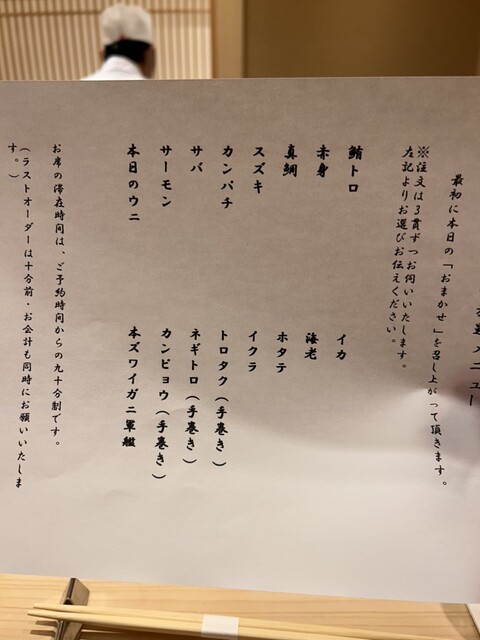 メニュー
最初に本日の「おまかせ」を召し上がって頂きます。
※注文は3貫ずつお伺いいたします。
左記よりお選びお伝えください。
鮪トロ
赤身
真鯛
スズキ
カンパチ
サバ
サーモン
本日のウニ
イカ
海老
ホタテ
イクラ
トロタク(手巻き)
ネギトロ(手巻き)
カンピョウ(手巻き)
本ズワイガニ軍艦
お席の滞在時間は、ご予約時間からの九十分制です。
(ラストオーダーは十分前・お会計も同時にお願いいたしま
す。)